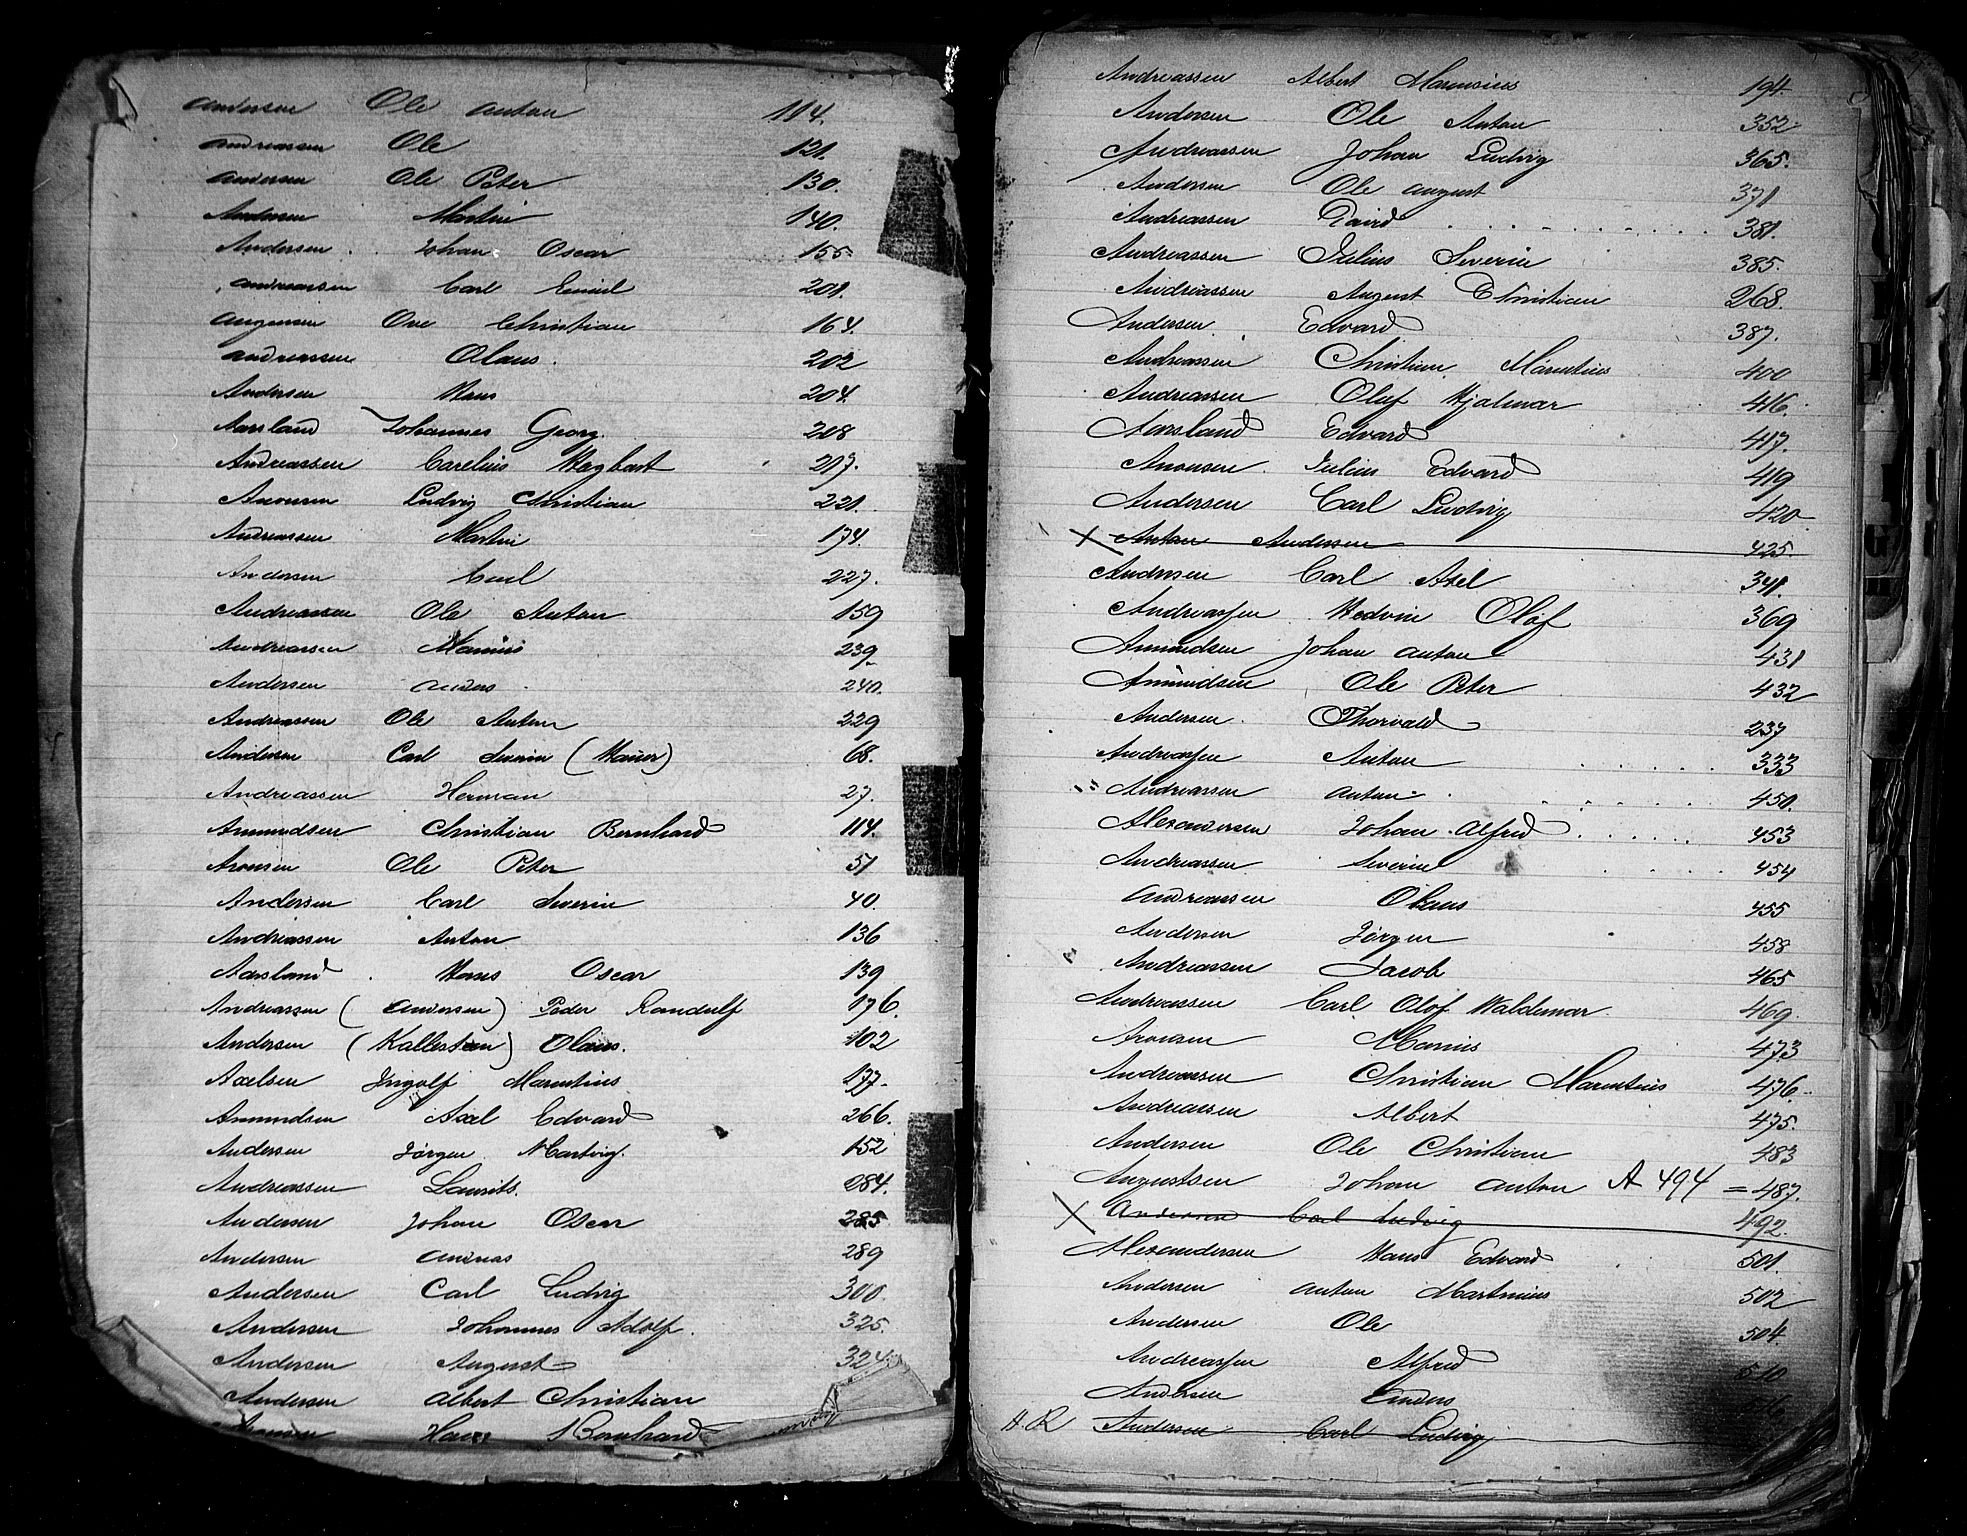 Andersen Ole Anton 114.
Andreassen Ole 121.
Andersen Ole Peter 130.
Andersen Martin 140.
Andersen Johan Oscar 155
Andreassen Carl Emil 201.
Ove Christian 164.
Andreassen Olaus. 202
Andersen Hans 204.
Aarsland Johannes Georg. 208
Andreassen Carelius Hagbart 217.
Aronsen Ludvig Christian 221.
Andreassen Martin 174.
Andersen Carl 227.
Andreassen Ole Anton 159
Andreassen Marius 239
Andersen Anders 240.
Andreassen Ole Anton 229
Andersen Carl Severin (Hauer) 68.
Andreassen Herman 27.
Amundsen Christian Bernhard 114.
Aronsen Ole Peter 51
Andersen Carl Severin 40.
Andreassen Anton 136
Aarsland Hans Oscar 139
Andreassen (Andersen) Peder Randulf 176.
Andersen (Kallesten) Olaus. 102
Axelsen Ingolf Marentius 177.
Amundsen Axel Edvard 266.
Andersen Jørgen Hartvig. 152
Andreassen Laurits. 284.
Andersen Johan Oscar 285
Andersen Andreas 289
Andersen Carl Ludvig 300.
Andersen Johannes Adolf. 325.
Andersen August 324
Andersen Albert Christian
Hans Bernhard
Andreassen Albert Marensius 194.
Andersen Ole Anton 352
Andreassen Johan Ludvig 365.
Andersen Ole August 371
Andreassen David 381.
Andreassen Julius Severin 385.
Andreassen August Christian 268.
Andersen Edvard 387.
Andreassen Christian Marentius 400
Andreassen Oluf Hjalmar 416.
Aarsland Edvard 417.
Aronsen Julius Edvard 419
Andersen Carl Ludvig 420
X Anton Andersen 425.
Andersen Carl Axel 341.
Andreassen Hedvin Olof 369
Amundsen Johan Anton 431
Amundsen Ole Peter 432
Andersen Thorvald 237
Andreassen Anton 333
Andreassen Anton 450.
Alexandersen Johan Alfred 453
Andreassen Severin 454
Andreassen Olaus 455
Andersen Jørgen 458
Andreassen Jacob 465
Andreassen Carl Olof Waldemar 469.
Aronsen Marius 473
Andreassen Christian Marentius 476.
Andreassen Albert 475.
Andersen Ole Christian 483
Augustsen Johan Anton A 494 = 487.
X Andersen Carl Ludvig 492.
Alexandersen Hans Edvard 501.
Andersen Anton Martinius 502
Andersen Ole 504.
Andreassen Alfred 510
Andersen
Andersen Carl Ludvig